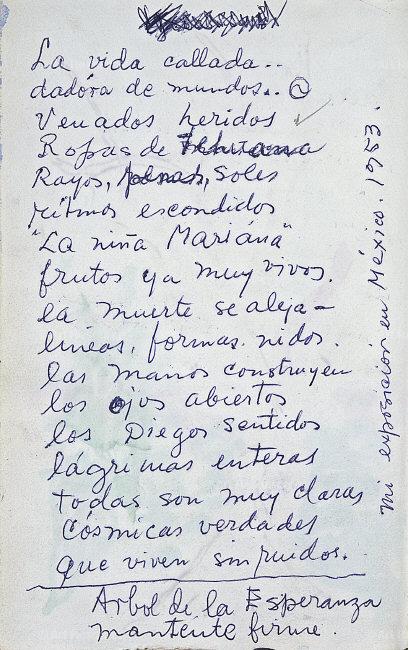 La vida callada..
dadóra de mundos..
Venados heridos
Ropas de Tehuana
Rayos, penas, Soles
ritmos escondidos
"La niña Mariana"
frutos ya muy vivos.
la muerte se aleja –
lineas, formas. nidos.
las manos construyen
los ojos abiertos
los Diegos sentidos
lágrimas enteras
todas son muy claras
Cósmicas verdades
que viven sin ruidos.
Arbol de la Esperanza
mantente firme.
mi exposición en México. 1953.